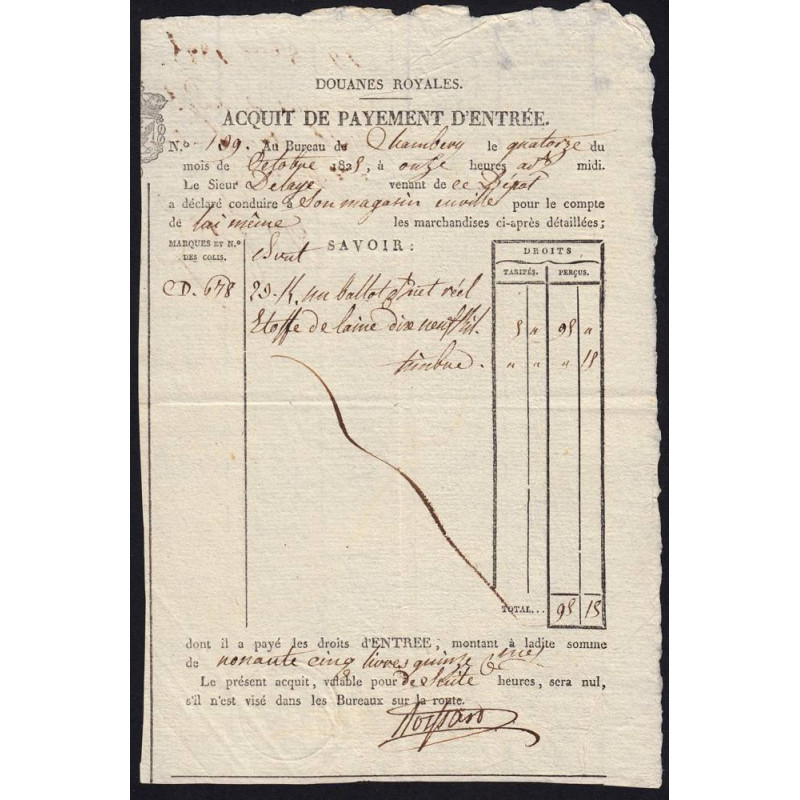 DOUANES ROYALES.
ACQUIT DE PAYEMENT D'ENTRÉE.
N.º 189. Au Bureau de Chambery le quatorze du
mois de Octobre 1825, à onze heures midi.
Le Sieur Delaye venant de ce Dépot
a déclaré conduire à Son magasin en ville pour le compte
de lui même les marchandises ci-après détaillées;
MARQUES ET N.º
DES COLIS.
SAVOIR:
DROITS
TARIFÉS. PERÇUS.
CD. 678 un ballot net réel
Etoffe de laine dix neuf 5 " 95 "
timbre. " " " 15
TOTAL... 95 15
dont il a payé les droits d'ENTREE, montant à ladite somme
de nonante cinq livres quinze
Le présent acquit, valable pour de Suite heures, sera nul,
s'il n'est visé dans les Bureaux sur la route.